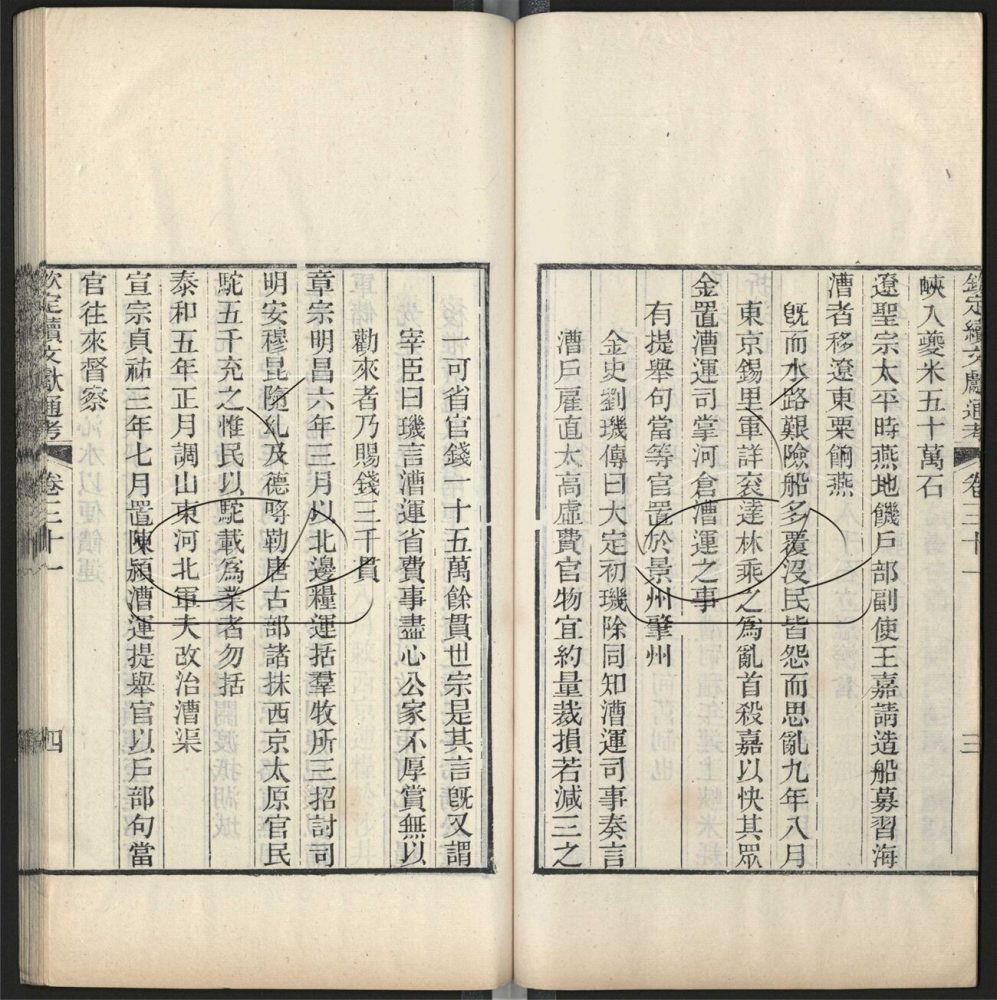 欽定續文獻通考 卷三十一 三
峽入夔米五十萬石
遼聖宗太平時燕地饑戶部副使王嘉請造船募習海
漕者移遼東粟餉燕
既而水路艱險船多覆没民皆怨而思亂九年八月
東京錫里軍詳袞達林乘之爲亂首殺嘉以快其眾
金置漕運司掌河倉漕運之事
有提舉句當等官置於景州肇州
金史劉璣傳曰大定初璣除同知漕運司事奏言
漕戶雇直太高虛費官物宜約量裁損若減三之
一可省官錢一十五萬餘貫世宗是其言既又謂
宰臣曰璣言漕運省費事盡心公家不厚賞無以
勸來者乃賜錢三千貫
章宗明昌六年三月以北邊糧運括羣牧所三招討司
明安穆昆隨糺及德哷勒唐古部諸抹西京太原官民
駝五千充之惟民以駝載爲業者勿括
泰和五年正月調山東河北軍夫改治漕渠
宣宗貞祐三年七月置陳潁漕運提舉官以戶部句當
官往來督察
欽定續文獻通考 卷三十一 四